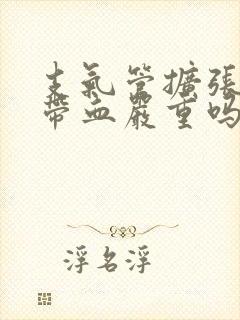 支氣管擴張
帶血嚴重吗
浮名浮